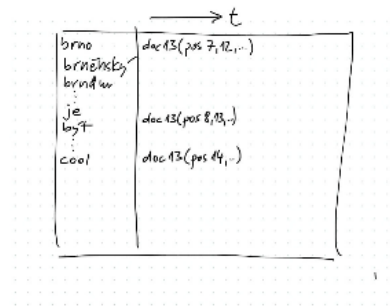 t
brno doc 13(pos 7,12,..)
brněnský
brnům
⋮
je doc 13(pos 8,13,..)
být
⋮
cool doc 13(pos 14,..)